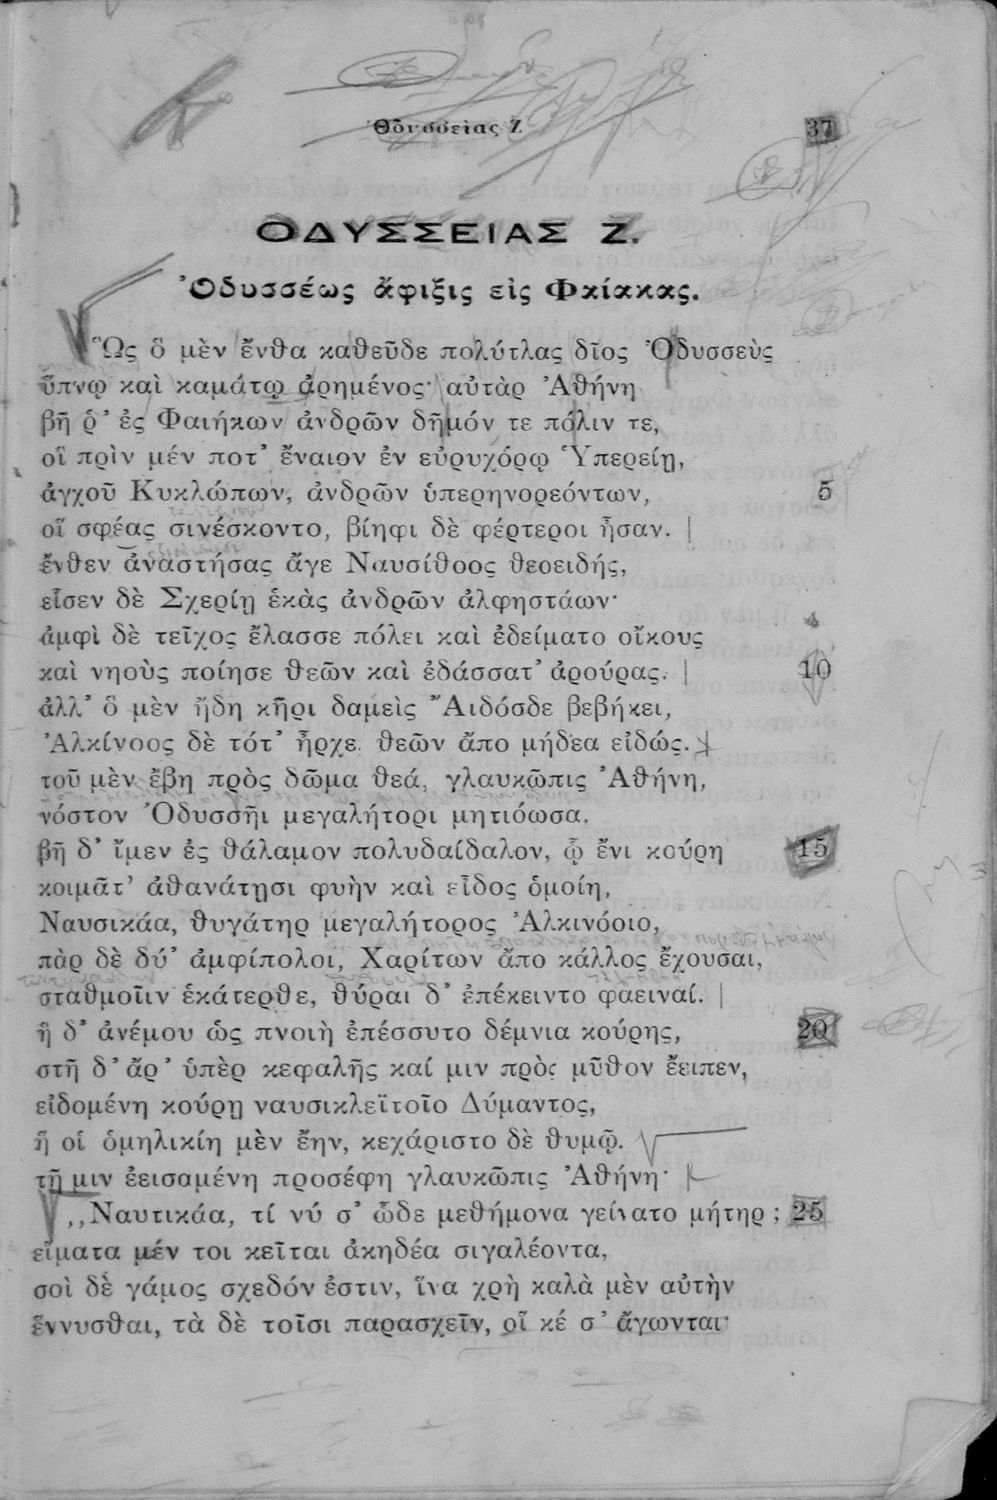 Ὀδυσσείας Ζ 37
ΟΔΥΣΣΕΙΑΣ Ζ.
Ὀδυσσέως ἄφιξις εἰς Φαίακας.
Ὣς ὃ μὲν ἔνθα καθεῦδε πολύτλας δῖος Ὀδυσσεὺς
ὕπνῳ καὶ καμάτῳ ἀρημένος· αὐτὰρ Ἀθήνη
βῆ ῥ' ἐς Φαιήκων ἀνδρῶν δῆμόν τε πόλιν τε,
οἳ πρὶν μέν ποτ' ἔναιον ἐν εὐρυχόρῳ Ὑπερείῃ,
ἀγχοῦ Κυκλώπων, ἀνδρῶν ὑπερηνορεόντων, 5
οἵ σφέας σινέσκοντο, βίηφι δὲ φέρτεροι ἦσαν.
ἔνθεν ἀναστήσας ἄγε Ναυσίθοος θεοειδής,
εἷσεν δὲ Σχερίῃ ἑκὰς ἀνδρῶν ἀλφηστάων·
ἀμφὶ δὲ τεῖχος ἔλασσε πόλει καὶ ἐδείματο οἴκους
καὶ νηοὺς ποίησε θεῶν καὶ ἐδάσσατ' ἀρούρας. 10
ἀλλ' ὃ μὲν ἤδη κῆρι δαμεὶς Ἄιδόσδε βεβήκει,
Ἀλκίνοος δὲ τότ' ἦρχε θεῶν ἄπο μήδεα εἰδώς.
τοῦ μὲν ἔβη πρὸς δῶμα θεά, γλαυκῶπις Ἀθήνη,
νόστον Ὀδυσσῆι μεγαλήτορι μητιόωσα.
βῆ δ' ἴμεν ἐς θάλαμον πολυδαίδαλον, ᾧ ἔνι κούρη 15
κοιμᾶτ' ἀθανάτῃσι φυὴν καὶ εἶδος ὁμοίη,
Ναυσικάα, θυγάτηρ μεγαλήτορος Ἀλκινόοιο,
πὰρ δὲ δύ' ἀμφίπολοι, Χαρίτων ἄπο κάλλος ἔχουσαι,
σταθμοῖιν ἑκάτερθε, θύραι δ' ἐπέκειντο φαειναί.
ἣ δ' ἀνέμου ὡς πνοιὴ ἐπέσσυτο δέμνια κούρης, 20
στῆ δ' ἄρ' ὑπὲρ κεφαλῆς καί μιν πρὸς μῦθον ἔειπεν,
εἰδομένη κούρῃ ναυσικλεϊτοῖο Δύμαντος,
ἥ οἱ ὁμηλικίη μὲν ἔην, κεχάριστο δὲ θυμῷ.
τῇ μιν ἐεισαμένη προσέφη γλαυκῶπις Ἀθήνη·
,,Ναυτικάα, τί νύ σ' ὧδε μεθήμονα γείνατο μήτηρ; 25
εἵματα μέν τοι κεῖται ἀκηδέα σιγαλέοντα,
σοὶ δὲ γάμος σχεδόν ἐστιν, ἵνα χρὴ καλὰ μὲν αὐτὴν
ἕννυσθαι, τὰ δὲ τοῖσι παρασχεῖν, οἵ κέ σ' ἄγωνται·